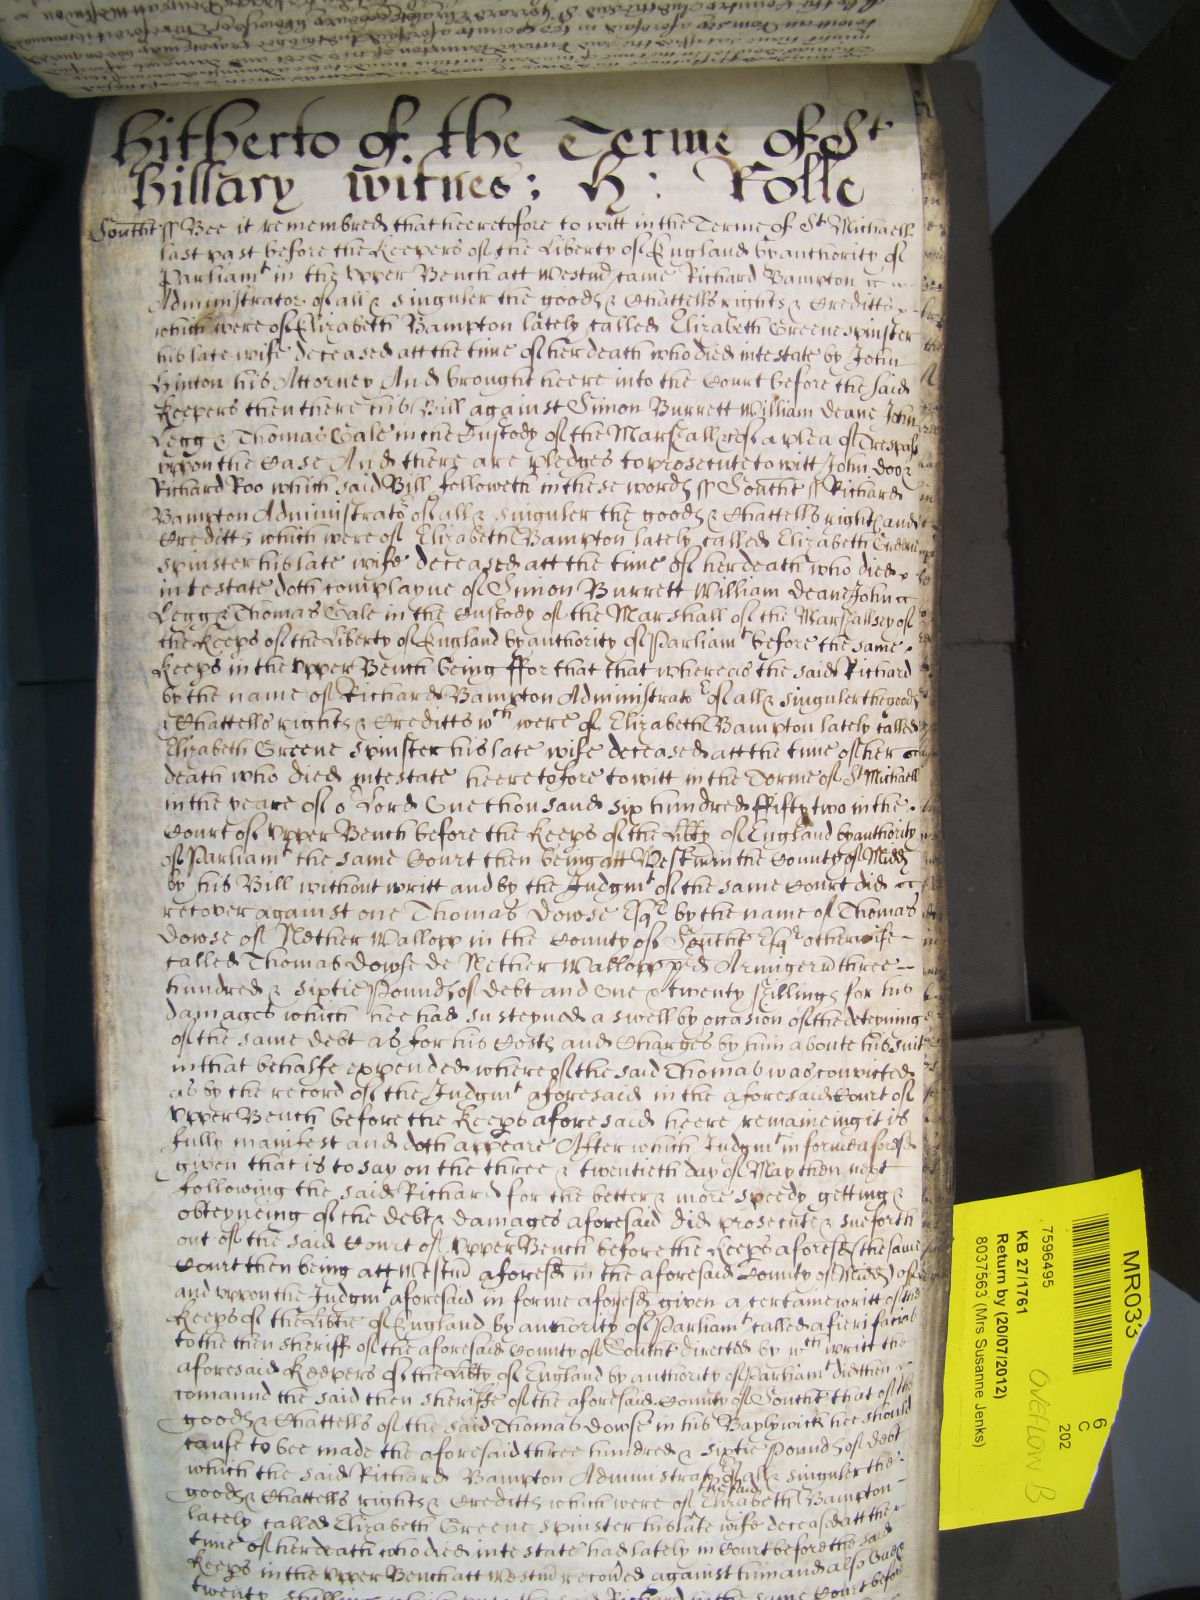 hitherto of the Terme of St
Hillary witnes: H: Rolle
Southt ss Bee it remembred that heeretofore to witt in the Terme of St Michaell
last past before the Keepers of the Liberty of England by authority of
Parliamt in the Upper Bench att Westmr came Richard Bampton
Administrator of all & singuler the goods & Chattells rights & Creditts
which were of Elizabeth Bampton lately called Elizabeth Greene spinster
his late wife deceased att the time of her death who died intestate by John
Hinton his Attorney And brought heere into the Court before the said
Keepers then there his Bill against Simon Burrett William Deane John
Legg & Thomas Gale in the Custody of the Marshall &c of a plea of Trespas
uppon the Case And there are pledges to prosecute to witt John Doo &
Richard Roo which said Bill followeth in these words ss Southt ss Richard
Bampton Administrator of all & singuler the goods & Chattells rights and
Creditts which were of Elizabeth Bampton lately called Elizabeth Greene
spinster his late wife deceased att the time of her death who died
intestate doth complayne of Simon Burrett William Deane John
Legg & Thomas Gale in the Custody of the Marshall of the Marshallsey of
the Keeps of the Liberty of England by authority of Parliamt before the same
Keeps in the Upper Bench being ffor that that whereas the said Richard
by the name of Richard Bampton Administrator of all & singuler the goods
& Chattells rights & Creditts wch were of Elizabeth Bampton lately called
Elizabeth Greene spinster his late wife deceased att the time of her
death who died intestate heeretofore to witt in the Terme of St Michaell
in the yeare of or Lord One thousand six hundred ffifty two in the
Court of Upper Bench before the Keeps of the Libty of England by authority
of Parliamt the same Court then being att Westmr in the County of Midd
by his Bill without writt and by the Judgmt of the same Court did
recover against one Thomas Dowse Esqr by the name of Thomas
Dowse of Nether Wallopp in the County of Southt Esqr otherwise
called Thomas Dowse de Nether Wallopp pred Armigerū three
hundred & sixtie Pounds of debt and One & twenty shillings for his
damages which hee had susteyned aswell by occasion of the deteyning
of the same debt as for his Costs and Charges by him aboute his suit
in that behalfe expended whereof the said Thomas was convicted
as by the record of the Judgmt aforesaid in the aforesaid Court of
Upper Bench before the Keeps aforesaid heere remaineing it is
fully manifest and doth appeare After which Judgmt in forme aforesd
given that is to say on the three & twentieth day of May then next
following the said Richard for the better & more speedy getting &
obteyneing of the debt & damages aforesaid did prosecute & sue forth
out of the said Court of Upper Bench before the Keeps aforesd (the same
Court then being att Westmr aforesd in the aforesaid County of Midd) of
and uppon the Judgmt aforesaid in forme aforesd given a certaine writt of the
Keeps of the Libtie of England by authority of Parliamt called a fieri facias
to the then Sheriff of the aforesaid County of Southt directed by wch writt the
aforesaid Keepers of the Libty of England by authority of Parliamt did then
comaund the said then Sheriffe of the aforesaid County of Southt that of the
goods & Chattells of the said Thomas Dowse in his Baylywick hee should
cause to bee made the aforesaid three hundred & sixtie Pounds of debt
which the said Richard Bampton Administrator of all & singuler the
goods & Chattells rights & Creditts which were of the said Elizabeth Bampton
lately called Elizabeth Greene spinster his late wife deceased att the
time of her death who died intestate had lately in Court before the said
Keeps in the Upper Bench att Westmr recoued against him and also
twenty shillings Richard in the same Court before
MR033
7596495
KB 27/1761
Return by (20/07/2012)
8037563 (Mrs Susanne Jenks)
6
C
202
OVERFLOW B